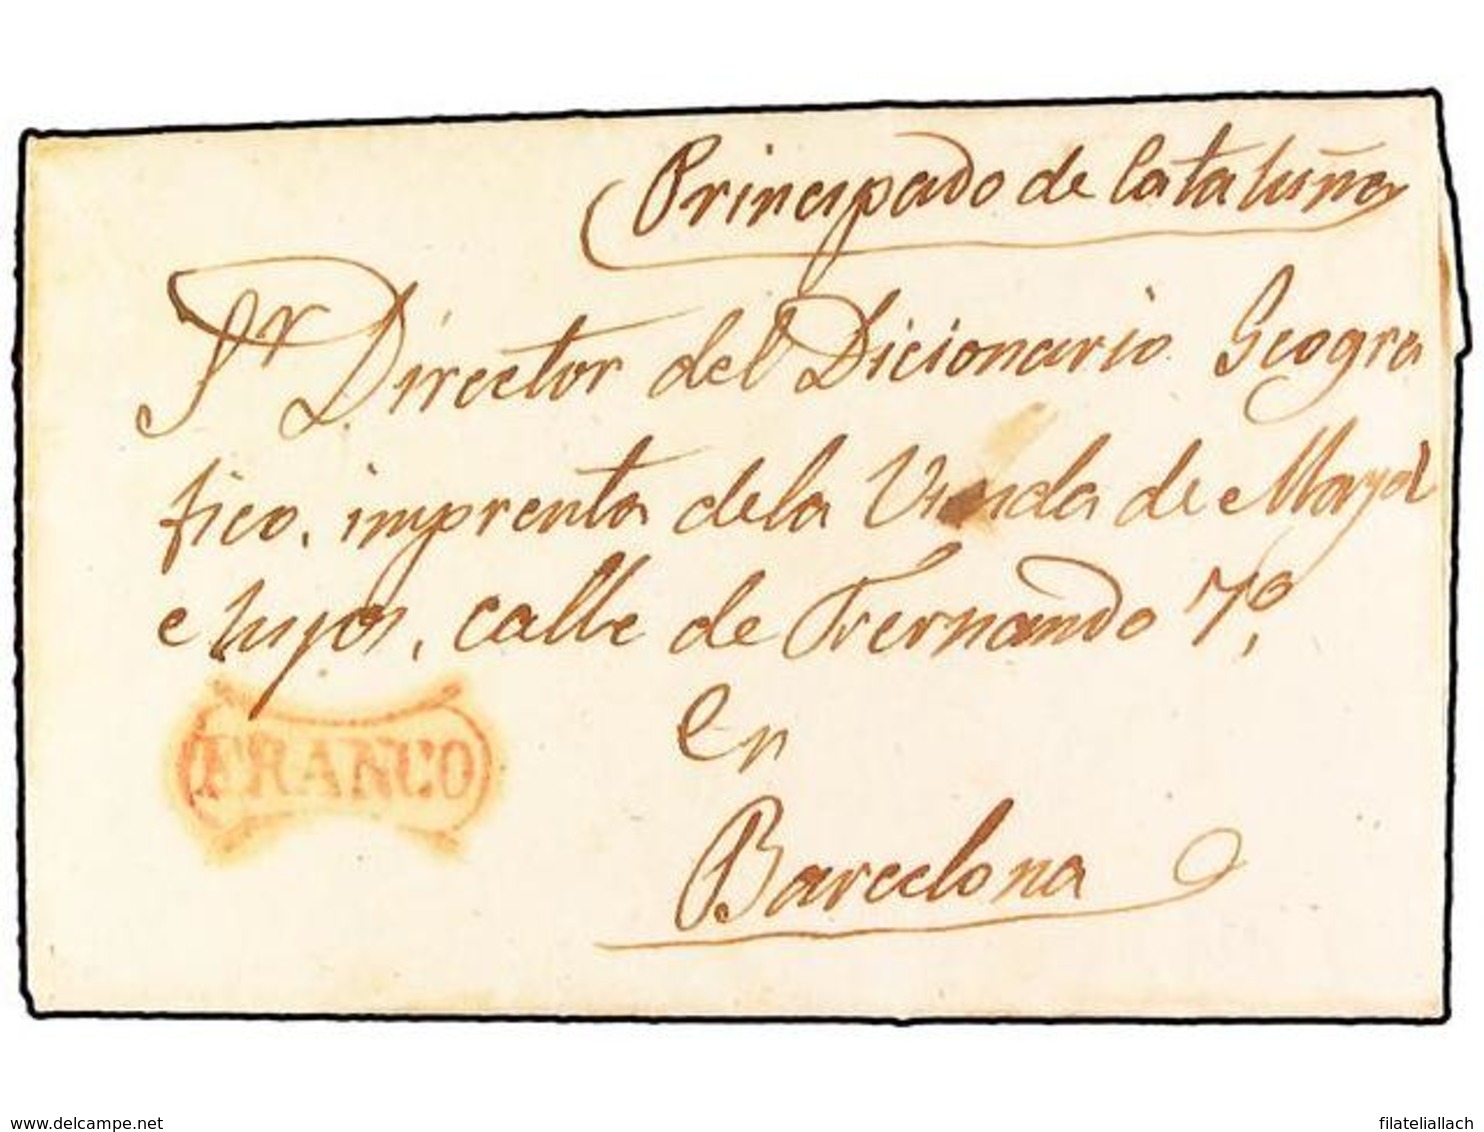 Principado de Cataluña
Sr Director del Dicionario Geogra
fico, imprenta de la Viuda de Mayol
e hijos, calle de Fernando 7º,
en
FRANCO
Barcelona
www.delcampe.net
filateliallach